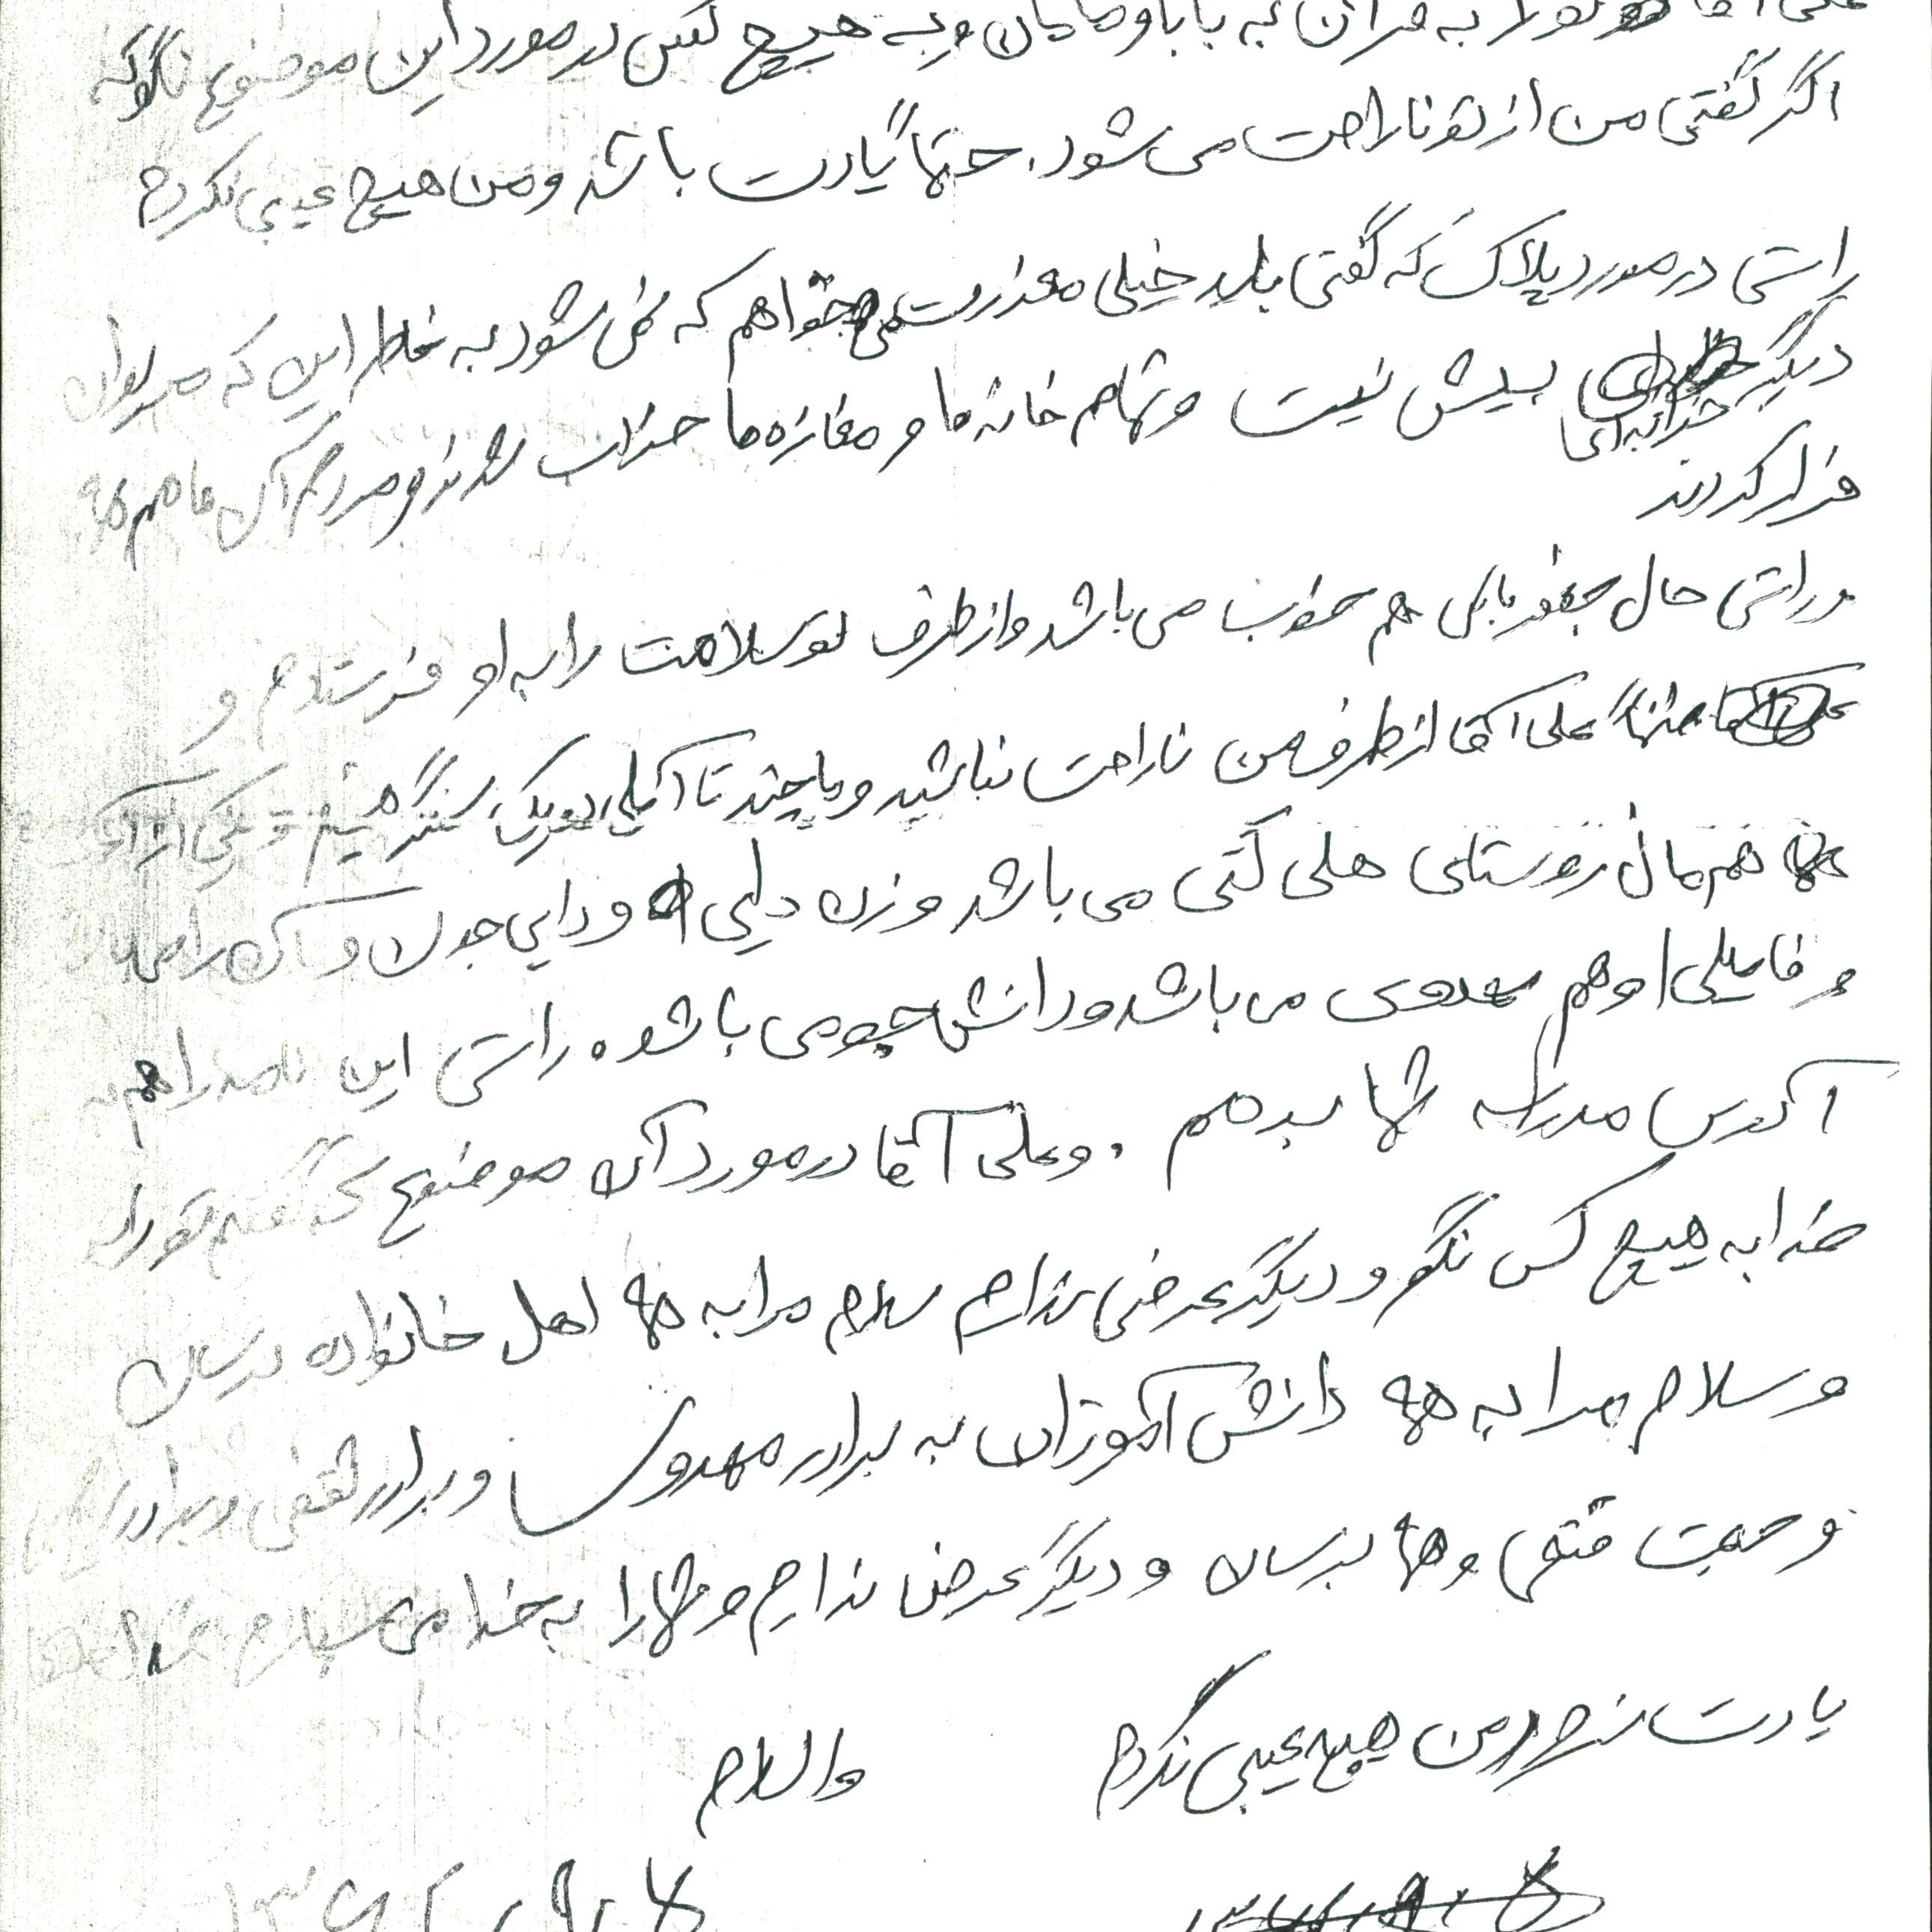 علی آقا تو را به قرآن به بابا و مامان و به هیچ کس در مورد این موضوع نگو که
اگر گفتی من از تو ناراحت می شود. حتماً یادت باشد و من هیچ عیبی نکردم
راستی در مورد پلاک که گفتی باید خیلی معذرت می خواهم که نمی شود به خاطر این که مریوان
دیگر خرابه ای بیش نیست و تمام خانه ها و مغازه ها خراب شدند و مردم آن ها هم
فرار کردند
و راستی حال جعفر بابای هم خوب می باشد و از طرف تو سلامت را به او فرستادم و
حتماً علی آقا از طرف من ناراحت نباشید و با چند تا آملی در یک سنگر هستیم و یکی از آن
ها هم مال روستای هلی کتی می باشد و زن دایی و دایی جون و
و فامیلی او هم مهدوی می باشد و دانش جو می باشد. راستی این نامه را هم به
آدرس مدرسه شما بدهم. و علی آقا در مورد آن موضوع که گفتم تو را به
خدا به هیچ کس نگو و دیگر عرضی ندارم سلام مرا به همه اهل خانواده برسان
و سلام مرا به همه دانش آموزان به برادر مهدوی و برادر ثقفی و برادر
و حجت متقی و هما برسان و دیگر عرض ندارم و شما را به خدا می سپارم
یادت نرود من هیچ عیبی نکردم والسلام